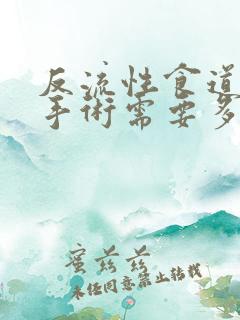 反流性食道
手術需要多
蜜芽芽
未经同意禁止转载